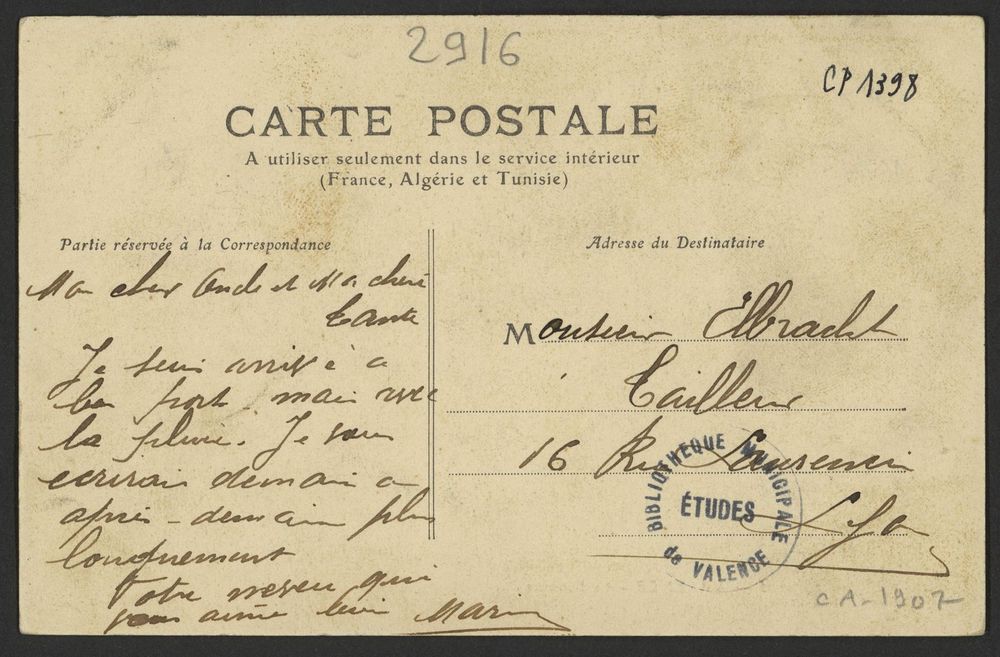 2916
CP 1398
CARTE POSTALE
A utiliser seulement dans le service intérieur
(France, Algérie et Tunisie)
Partie réservée à la Correspondance
Mon cher Oncle et Ma chère
tante
Je suis arrivé à
bon port mais avec
la pluie. Je vous
ecrirais demain a
après-demain plus
longuement
Votre neveu qui
vous aime bien Marin
Adresse du Destinataire
Monsieur Elbracht
Tailleur
16 Rue Laurencin
Lyon
BIBLIOTHEQUE MUNICIPALE
ÉTUDES
de VALENCE
CA-1907